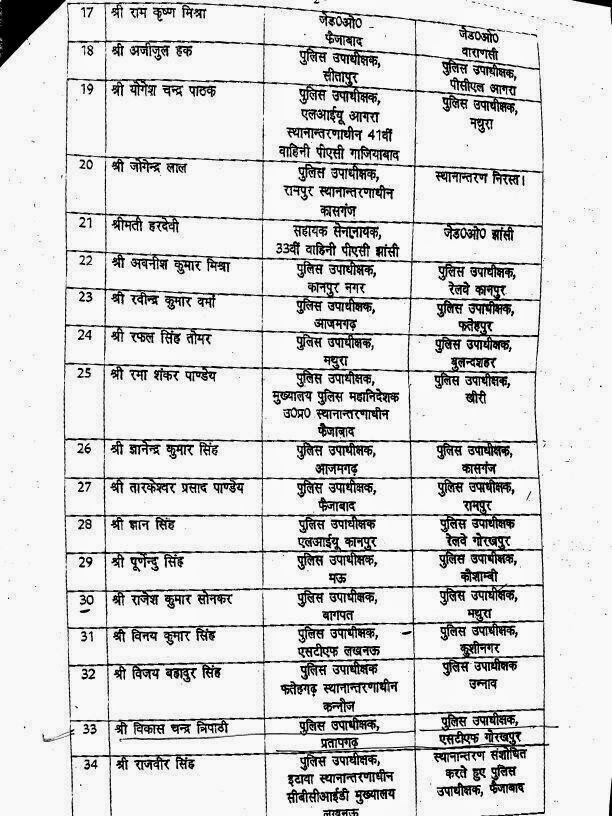 17 श्री राम कृष्ण मिश्रा जेड0ओ0 जेड0ओ0
फैजाबाद वाराणसी
18 श्री अजीजुल हक पुलिस उपाधीक्षक, पुलिस उपाधीक्षक,
सीतापुर पीसीएल आगरा
19 श्री योगेश चन्द्र पाठक पुलिस उपाधीक्षक, पुलिस उपाधीक्षक,
एलआईयू आगरा मथुरा
स्थानान्तरणाधीन 41वीं
वाहिनी पीएसी गाजियाबाद
20 श्री जोगेन्द्र लाल पुलिस उपाधीक्षक, स्थानान्तरण निरस्त।
रामपुर स्थानान्तरणाधीन
कासगंज
21 श्रीमती हरदेवी सहायक सेनानायक, जेड0ओ0 झांसी
33वीं वाहिनी पीएसी झांसी
22 श्री अवनीश कुमार मिश्रा पुलिस उपाधीक्षक, पुलिस उपाधीक्षक,
कानपुर नगर रेलवे कानपुर
23 श्री रवीन्द्र कुमार वर्मा पुलिस उपाधीक्षक, पुलिस उपाधीक्षक,
आजमगढ़ फतेहपुर
24 श्री रफल सिंह तोमर पुलिस उपाधीक्षक, पुलिस उपाधीक्षक,
मथुरा बुलन्दशहर
25 श्री रमा शंकर पाण्डेय पुलिस उपाधीक्षक, पुलिस उपाधीक्षक,
मुख्यालय पुलिस महानिदेशक खीरी
उ0प्र0 स्थानान्तरणाधीन
फैजाबाद
26 श्री ज्ञानेन्द्र कुमार सिंह पुलिस उपाधीक्षक, पुलिस उपाधीक्षक,
आजमगढ़ कासगंज
27 श्री तारकेश्वर प्रसाद पाण्डेय पुलिस उपाधीक्षक, पुलिस उपाधीक्षक,
फैजाबाद रामपुर
28 श्री ज्ञान सिंह पुलिस उपाधीक्षक पुलिस उपाधीक्षक
एलआईयू कानपुर रेलवे गोरखपुर
29 श्री पूर्णेन्दु सिंह पुलिस उपाधीक्षक, पुलिस उपाधीक्षक,
मऊ कौशाम्बी
30 श्री राजेश कुमार सोनकर पुलिस उपाधीक्षक, पुलिस उपाधीक्षक,
बागपत मथुरा
31 श्री विनय कुमार सिंह पुलिस उपाधीक्षक, पुलिस उपाधीक्षक,
एसटीएफ लखनऊ कुशीनगर
32 श्री विजय बहादुर सिंह पुलिस उपाधीक्षक पुलिस उपाधीक्षक
फतेहगढ़ स्थानान्तरणाधीन उन्नाव
कन्नौज
33 श्री विकास चन्द्र त्रिपाठी पुलिस उपाधीक्षक, पुलिस उपाधीक्षक,
प्रतापगढ़ एसटीएफ गोरखपुर
34 श्री राजवीर सिंह पुलिस उपाधीक्षक, स्थानान्तरण संशोधित
इटावा स्थानान्तरणाधीन करते हुए पुलिस
सीबीसीआईडी मुख्यालय उपाधीक्षक, फैजाबाद
लखनऊ